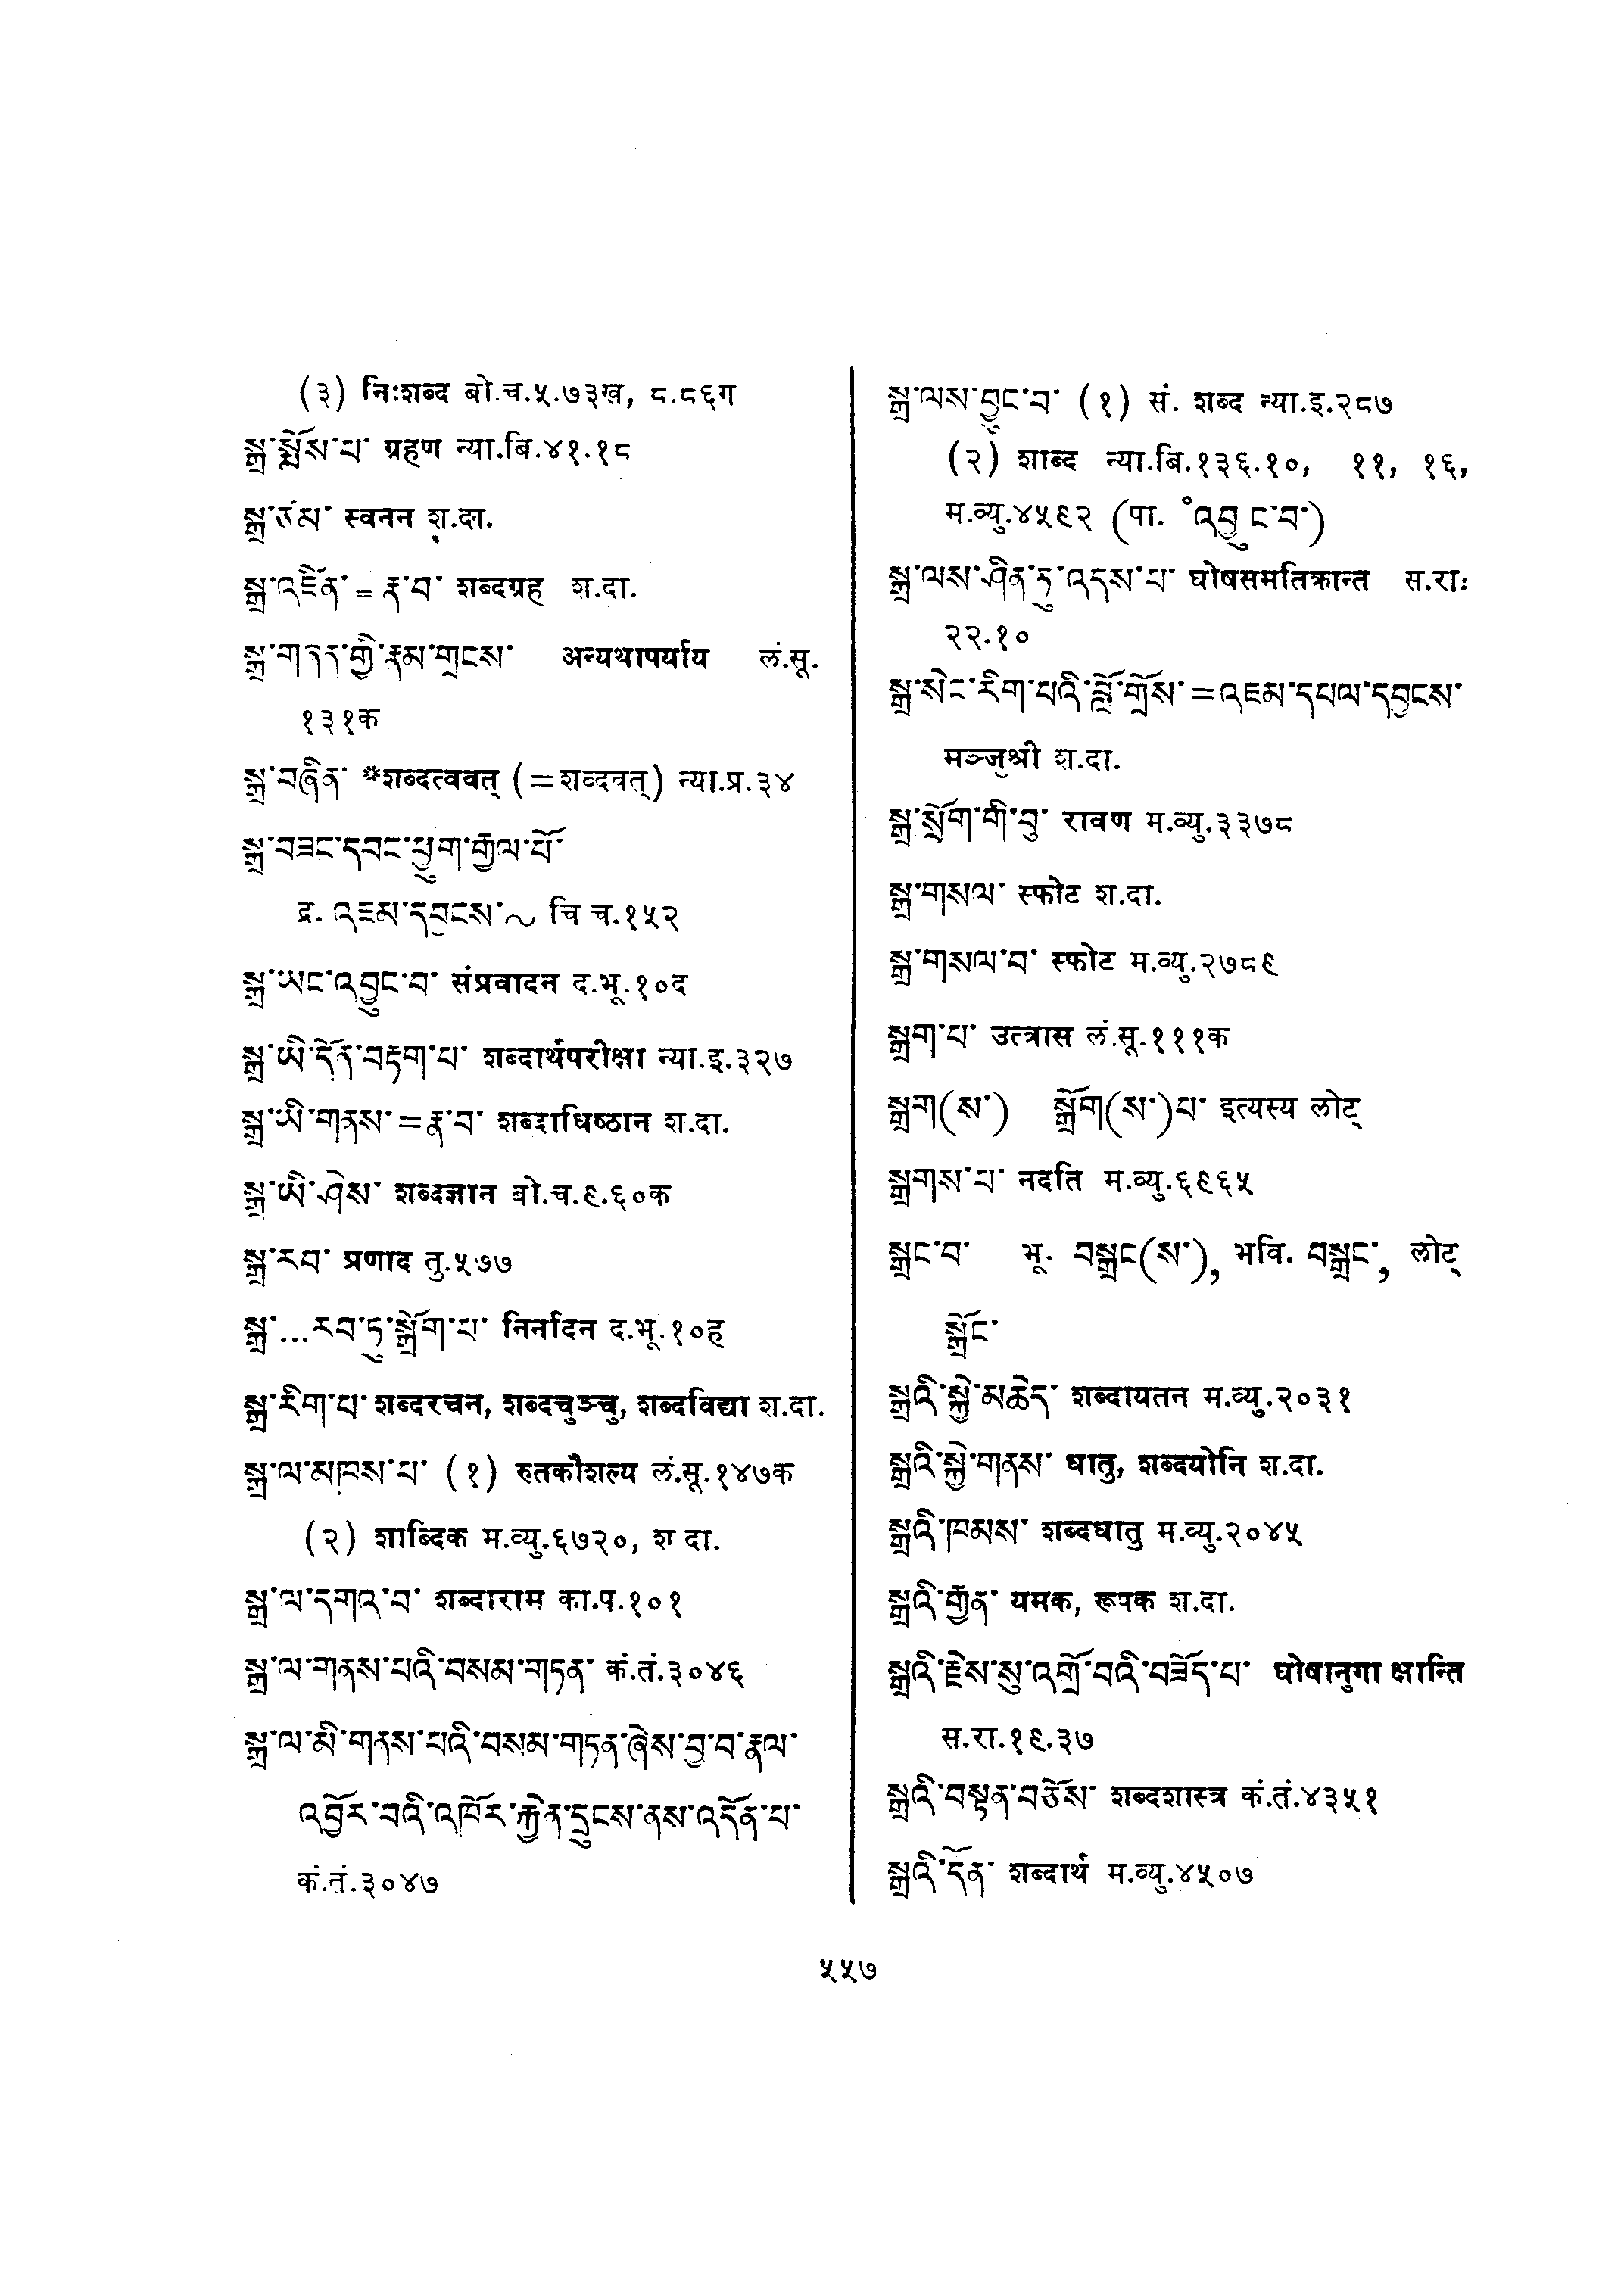 (३) निःशब्द बो.च.५.७३ख, ८.८६ग
སྒྲ་སྨོས་པ་ ग्रहण न्या.बि.४१.१८
སྒྲ་ཙམ་ स्वनन श.दा.
སྒྲ་འཛིན་ = རྣ་བ་ शब्दग्रह श.दा.
སྒྲ་གདན་གྱི་རྣམ་གྲངས་ अन्यथापर्याय लं.सू.
१३१क
སྒྲ་བཞིན་ *शब्दत्ववत् (=शब्दवत्) न्या.प्र.३४
སྒྲ་བཟང་དབང་ཕྱུག་རྒྱལ་པོ་
द्र. འཇམ་དབྱངས་~ चि च.१५२
སྒྲ་ཡང་འབྱུང་བ་ संप्रवादन द.भू.१०द
སྒྲ་ཡི་དོན་བརྟག་པ་ शब्दार्थपरीक्षा न्या.इ.३२७
སྒྲ་ཡི་གནས་=རྣ་བ་ शब्दाधिष्ठान श.दा.
སྒྲ་ཡི་ཤེས་ शब्दज्ञान बो.च.९.६०क
སྒྲ་རབ་ प्रणाद तु.५७७
སྒྲ་...རབ་ཏུ་སྒྲོག་པ་ निर्नादिन द.भू.१०ह
སྒྲ་རིག་པ་ शब्दरचन, शब्दचुञ्चु, शब्दविद्या श.दा.
སྒྲ་ལ་མཁས་པ་ (१) रुतकौशल्य लं.सू.१४७क
(२) शाब्दिक म.व्यु.६७२०, श दा.
སྒྲ་ལ་དགའ་བ་ शब्दाराम का.प.१०१
སྒྲ་ལ་གནས་པའི་བསམ་གཏན་ कं.तं.३०४६
སྒྲ་ལ་མི་གནས་པའི་བསམ་གཏན་ཞེས་བྱ་བ་རྣལ་
འབྱོར་བའི་འཁོར་རྐྱེན་དྲུངས་ནས་འདོན་པ་
कं.तं.३०४७
སྒྲ་ལས་བྱུང་བ་ (१) सं. शब्द न्या.इ.२८७
(२) शाब्द न्या.बि.१३६.१०, ११, १६,
म.व्यु.४५९२ (पा. ༠འབྱུང་བ་)
སྒྲ་ལས་ཤིན་ཏུ་འདས་པ་ घोषसमतिक्रान्त स.राः
२२.१०
སྒྲ་སེང་རིག་པའི་བློ་གྲོས་=འཇམ་དཔལ་དབྱངས་
मञ्जुश्री श.दा.
སྒྲ་སྒྲོག་གི་བུ་ रावण म.व्यु.३३७८
སྒྲ་གསལ་ स्फोट श.दा.
སྒྲ་གསལ་བ་ स्फोट म.व्यु.२७८९
སྒྲག་པ་ उत्त्रास लं.सू.१११क
སྒྲག(ས་) སྒྲོག(ས་)པ་ इत्यस्य लोट्
སྒྲགས་པ་ नदति म.व्यु.६९६५
སྒྲང་བ་ भू. བསྒྲང(ས་), भवि. བསྒྲང་, लोट्
སྒྲོང་
སྒྲའི་སྐྱེ་མཆེད་ शब्दायतन म.व्यु.२०३१
སྒྲའི་སྐྱེ་གནས་ धातु, शब्दयोनि श.दा.
སྒྲའི་ཁམས་ शब्दधातु म.व्यु.२०४५
སྒྲའི་རྒྱན་ यमक, रूपक श.दा.
སྒྲའི་རྗེས་སུ་འགྲོ་བའི་བཟོད་པ་ घोषानुगा क्षान्ति
स.रा.१९.३७
སྒྲའི་བསྟན་བཅོས་ शब्दशास्त्र कं.तं.४३५१
སྒྲའི་དོན་ शब्दार्थ म.व्यु.४५०७
५५७